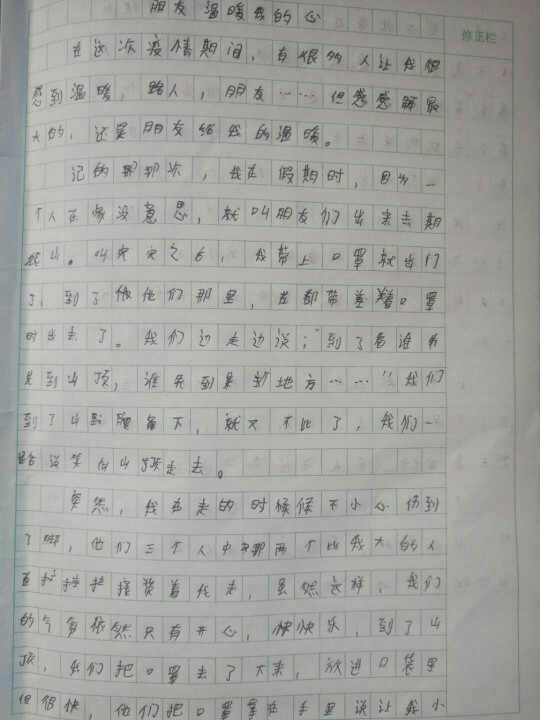 朋友温暖我的心
修正栏
在这次疫情期间，有很多人让我很
感到温暖，路人，朋友……但感感
大的，还是朋友给我的温暖。
记的那那次，我在假期时，因为一
个人在家没意思，就叫朋友们出来去
山。叫完之后，我带上口罩就出门
了，到了他们那里，在都带着口罩
时出去了。我们边走边说；到了看谁
先到山顶，谁先到某地方……"我们
到了山脚下，就又不比了，我们一
路说笑似山顶走去。
突然，我在走的时候候不小心伤到
了脚，他们三个人中那两个比我大的人
着我走，虽然这样，我们
的气氛依然只有开心，快快乐，到了山
顶，我们把口罩去了下来，放进口袋里
但很快，他们把口罩拿在手里说让我小